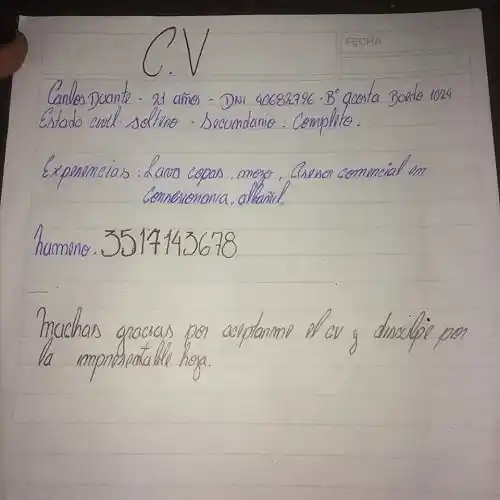 FECHA
C.V
Carlos Duarte - 21 años - DNI 40682796 - B° acosta Boedo 1024
Estado civil soltero - Secundario: Completo.
Experiencias: Lava copas, mozo, Asesor comercial en
Consesionaria, albañil.
numero. 3517143678
muchas gracias por aceptarme el cv y disculpe por
la impresentable hoja.